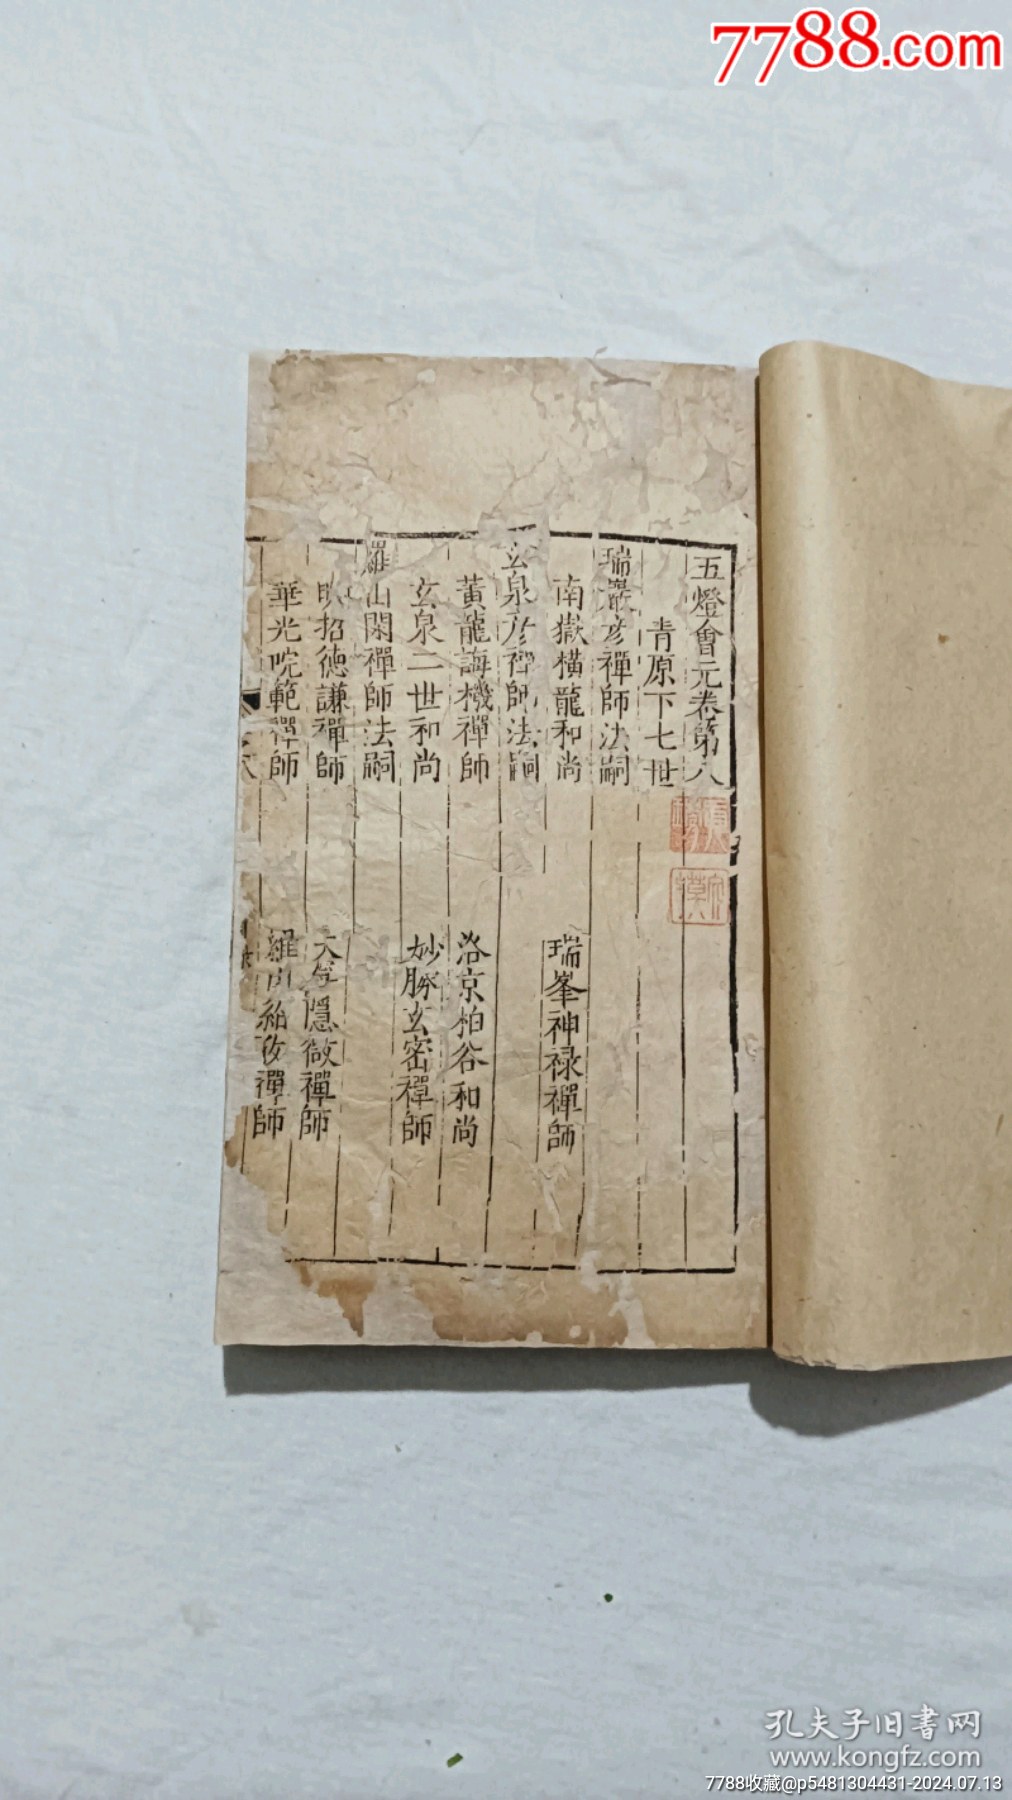 7788.com
五燈會元卷第八
青原下七世
瑞巖彦禪師法嗣
南嶽橫龍和尚
瑞峯神禄禪師
玄泉彦禪師法嗣
黃龍誨機禪師
洛京柏谷和尚
玄泉二世和尚
妙勝玄密禪師
羅山閑禪師法嗣
招德謙禪師
大寧隱微禪師
華光院範禪師
羅山紹孜禪師
孔夫子旧書网
www.kongfz.com
7788收藏@p5481304431-2024.07.13